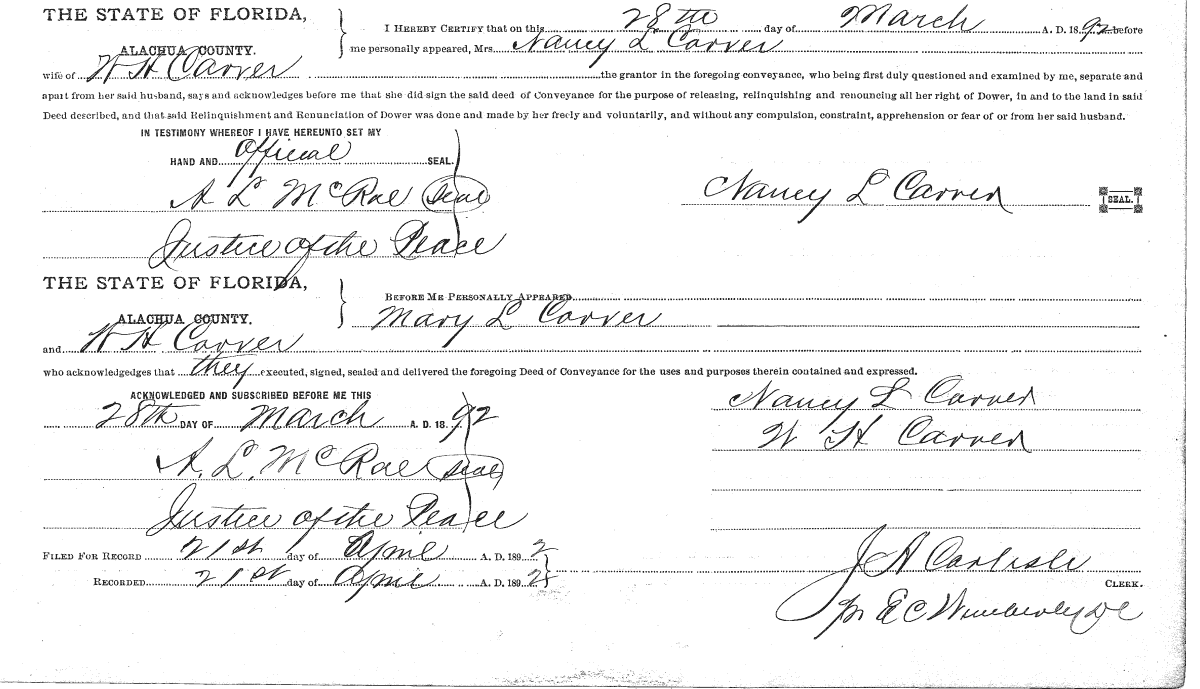 THE STATE OF FLORIDA,
ALACHUA COUNTY.
I HEREBY CERTIFY that on this 28th day of March A. D. 1892 before
me personally appeared, Mrs. Nancy L Carver
wife of W H Carver the grantor in the foregoing conveyance, who being first duly questioned and examined by me, separate and
apart from her said husband, says and acknowledges before me that she did sign the said deed of Conveyance for the purpose of releasing, relinquishing and renouncing all her right of Dower, in and to the land in said
Deed described, and that said Relinquishment and Renunciation of Dower was done and made by her freely and voluntarily, and without any compulsion, constraint, apprehension or fear of or from her said husband.
IN TESTIMONY WHEREOF I HAVE HEREUNTO SET MY
HAND AND Official SEAL.
A L McRae Seal
Nancy L Carver SEAL.
Justice of the Peace
THE STATE OF FLORIDA,
ALACHUA COUNTY.
BEFORE ME PERSONALLY APPEARED
Mary L Carver
and W H Carver
who acknowledgedges that they executed, signed, sealed and delivered the foregoing Deed of Conveyance for the uses and purposes therein contained and expressed.
ACKNOWLEDGED AND SUBSCRIBED BEFORE ME THIS
28th DAY OF March A. D. 18 92
Nancy L Carver
W H Carver
A. L. McRae Seal
Justice of the Peace
FILED FOR RECORD 21st day of April A. D. 1892
RECORDED 21st day of April A. D. 1892
J A Carlisle
CLERK.
Pr E C Wimberly DC